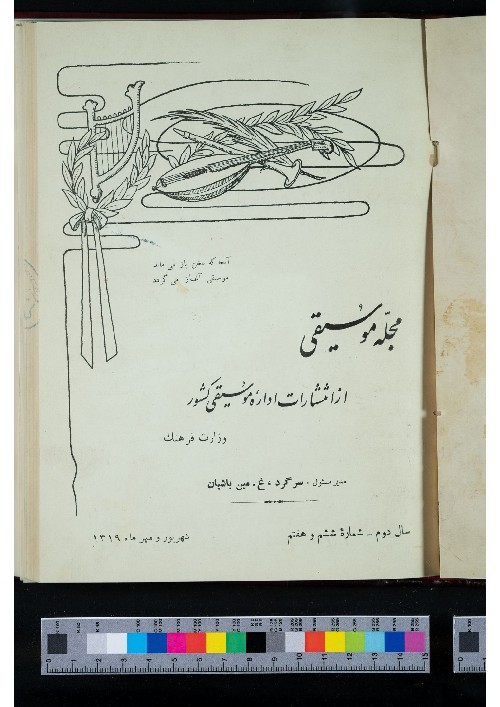 آنجا که سخن باز می ماند
موسیقی آغاز می گردد
مجلّه موسیقی
از انتشارات ادارهٔ موسیقی کشور
وزارت فرهنك
مدیر مسئول ، سرگرد ، غ . مین باشیان
سال دوم ـ شمارهٔ ششم و هفتم
شهریور و مهر ماه ۱۳۱۹
0 1 2 3 4 5 6 7 8 9 10 11 12 13 14 15